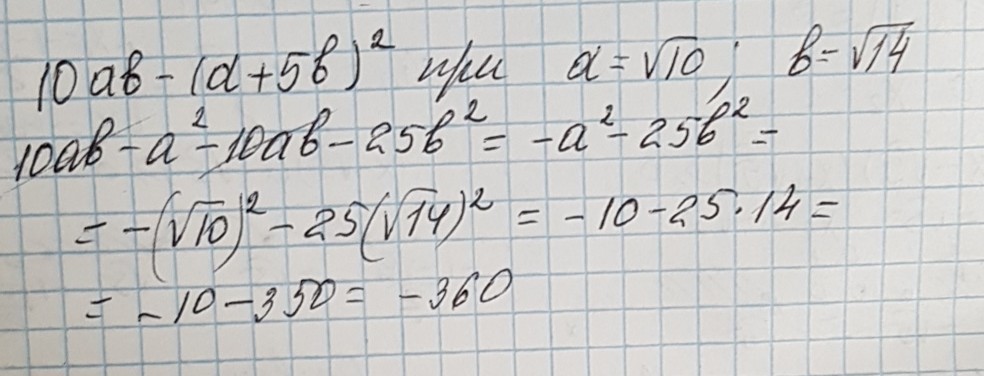 10ab - (a+5b)² при a = √10; b = √14
10ab - a² - 10ab - 25b² = -a² - 25b² =
= -(√10)² - 25(√14)² = -10 - 25·14 =
= -10 - 350 = -360